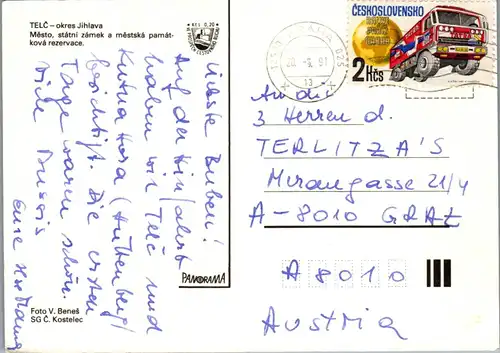 TELČ – okres Jihlava
Město, státní zámek a městská památ-
ková rezervace.
Kčs 0,20
Liebste Buben!
Auf der Hinfahrt
haben wir Telč und
Kutna Hora (Kuttenberg)
besichtigt. Die ersten
Tage waren schön.
Viele Bussis
Eure
PANORAMA
Foto V. Beneš
SG Č. Kostelec
ČESKOSLOVENSKO
2 Kčs
An die
3 Herren d.
TERLITZA'S
Mirangasse 21/4
A-8010 GRAZ
A 8010
Austria